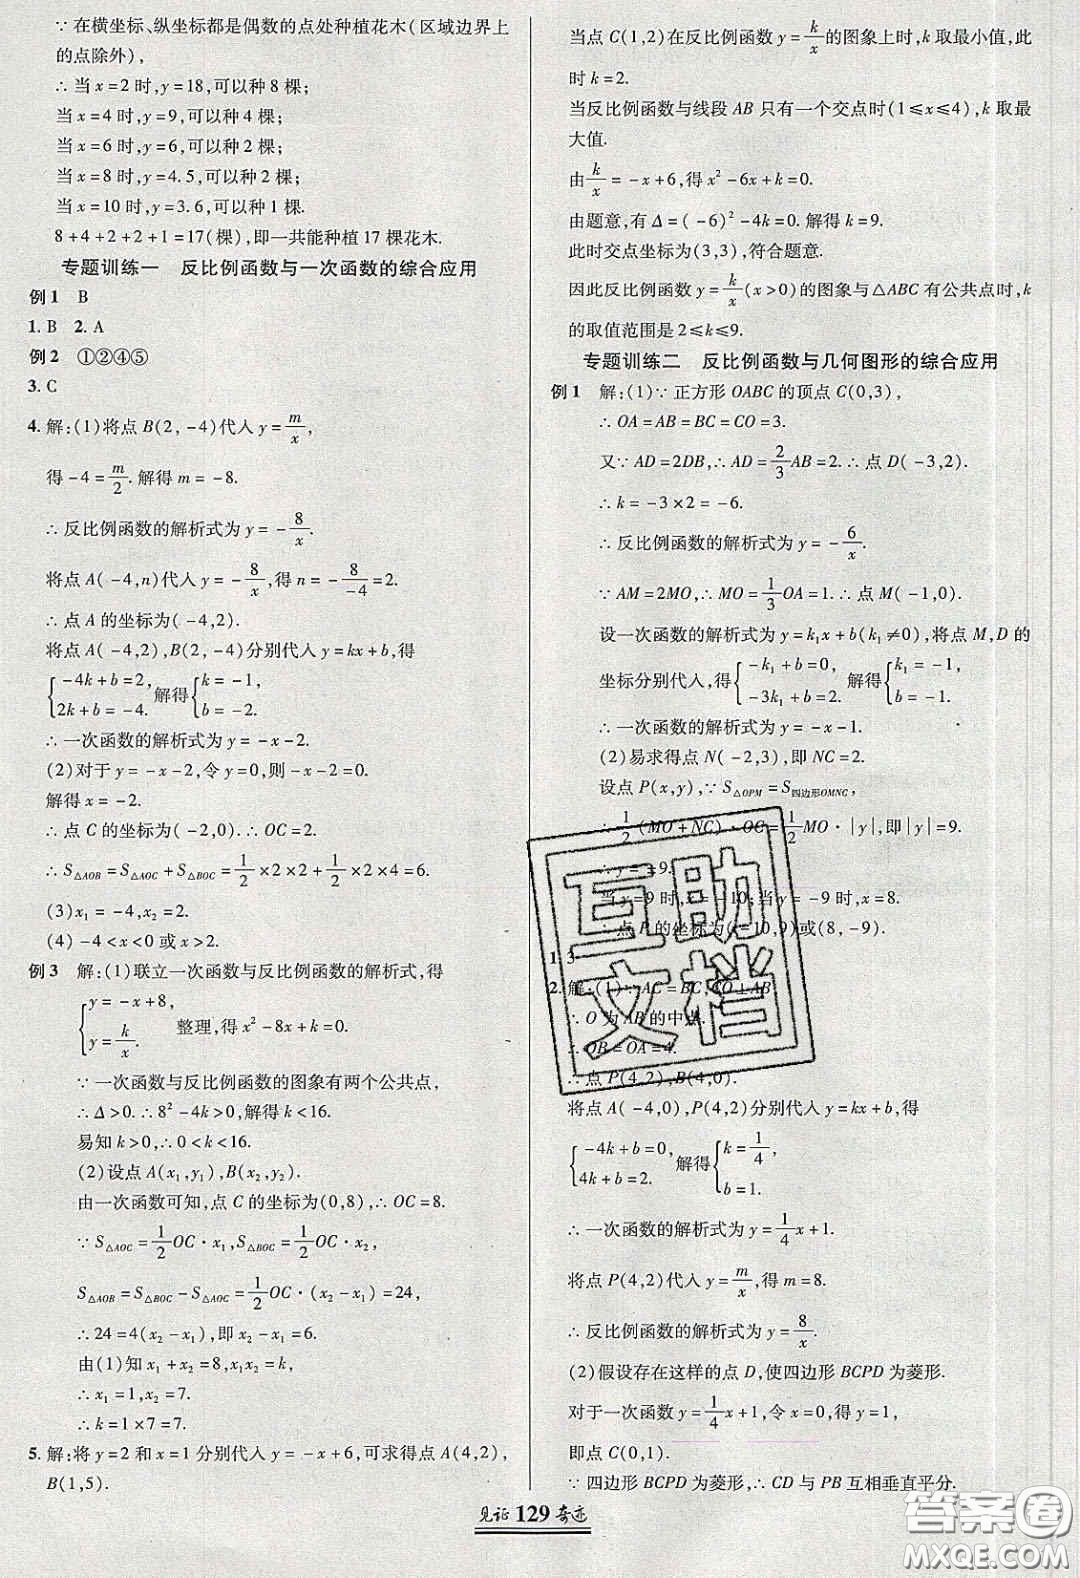 ∵ 在横坐标、纵坐标都是偶数的点处种植花木(区域边界上
的点除外),
∴ 当 x=2 时,y=18,可以种 8 棵;
当 x=4 时,y=9,可以种 4 棵;
当 x=6 时,y=6,可以种 2 棵;
当 x=8 时,y=4.5,可以种 2 棵;
当 x=10 时,y=3.6,可以种 1 棵.
8+4+2+2+1=17(棵),即一共能种植 17 棵花木.
专题训练一 反比例函数与一次函数的综合应用
例1 B
1. B 2. A
例2 ①②④⑤
3. C
4. 解:(1)将点 B(2,-4)代入 y=m/x,
得 -4=m/2. 解得 m=-8.
∴ 反比例函数的解析式为 y=-8/x.
将点 A(-4,n)代入 y=-8/x,得 n=-8/-4=2.
∴ 点 A 的坐标为(-4,2).
将点 A(-4,2),B(2,-4)分别代入 y=kx+b,得
{-4k+b=2, 2k+b=-4. 解得{k=-1, b=-2.
∴ 一次函数的解析式为 y=-x-2.
(2)对于 y=-x-2,令 y=0,则 -x-2=0.
解得 x=-2.
∴ 点 C 的坐标为(-2,0).∴ OC=2.
∴ S△AOB=S△AOC+S△BOC=1/2×2×2+1/2×2×4=6.
(3)x₁=-4,x₂=2.
(4)-4<x<0 或 x>2.
例3 解:(1)联立一次函数与反比例函数的解析式,得
{y=-x+8, y=k/x. 整理,得 x²-8x+k=0.
∵ 一次函数与反比例函数的图象有两个公共点,
∴ Δ>0.∴ 8²-4k>0,解得 k<16.
易知 k>0,∴ 0<k<16.
(2)设点 A(x₁,y₁),B(x₂,y₂).
由一次函数可知,点 C 的坐标为(0,8),∴ OC=8.
∵ S△AOC=1/2OC·x₁,S△BOC=1/2OC·x₂,
S△AOB=S△BOC-S△AOC=1/2OC·(x₂-x₁)=24,
∴ 24=4(x₂-x₁),即 x₂-x₁=6.
由(1)知 x₁+x₂=8,x₁x₂=k,
∴ x₁=1,x₂=7.
∴ k=1×7=7.
5. 解:将 y=2 和 x=1 分别代入 y=-x+6,可求得点 A(4,2),
B(1,5).
当点 C(1,2)在反比例函数 y=k/x的图象上时,k取最小值,此
时 k=2.
当反比例函数与线段 AB 只有一个交点时(1≤x≤4),k取最
大值.
由k/x=-x+6,得 x²-6x+k=0.
由题意,有 Δ=(-6)²-4k=0. 解得 k=9.
此时交点坐标为(3,3),符合题意.
因此反比例函数 y=k/x(x>0)的图象与△ABC 有公共点时,k
的取值范围是 2≤k≤9.
专题训练二 反比例函数与几何图形的综合应用
例1 解:(1)∵ 正方形 OABC 的顶点 C(0,3),
∴ OA=AB=BC=CO=3.
又∵ AD=2DB,∴ AD=2/3AB=2.∴ 点 D(-3,2).
∴ k=-3×2=-6.
∴ 反比例函数的解析式为 y=-6/x.
∵ AM=2MO,∴ MO=1/3OA=1.∴ 点 M(-1,0).
设一次函数的解析式为 y=k₁x+b(k₁≠0),将点 M,D 的
坐标分别代入,得{-k₁+b=0, -3k₁+b=2. 解得{k₁=-1, b=-1.
∴ 一次函数的解析式为 y=-x-1.
(2)易求得点 N(-2,3),即 NC=2.
设点 P(x,y),∵ S△OPM=S四边形OMNC,
∴ 1/2(MO+NC)·OC=1/2MO·|y|,即|y|=9.
∴ y=±9.
当 y=9 时,x=-10;当 y=-9 时,x=8.
∴ 点 P 的坐标为(-10,9)或(8,-9).
1. 3
2. 解:(1)∵ AC=BC,CO⊥AB,
∴ O 为 AB 的中点.
∴ OB=OA=4.
∴ 点 P(4,2),B(4,0).
将点 A(-4,0),P(4,2)分别代入 y=kx+b,得
{-4k+b=0, 4k+b=2. 解得{k=1/4, b=1.
∴ 一次函数的解析式为 y=1/4x+1.
将点 P(4,2)代入 y=m/x,得 m=8.
∴ 反比例函数的解析式为 y=8/x.
(2)假设存在这样的点 D,使四边形 BCPD 为菱形.
对于一次函数 y=1/4x+1,令 x=0,得 y=1,
即点 C(0,1).
∵ 四边形 BCPD 为菱形,∴ CD 与 PB 互相垂直平分.
见证 129 奇迹
互助
文档
答案圈
MXQE.COM